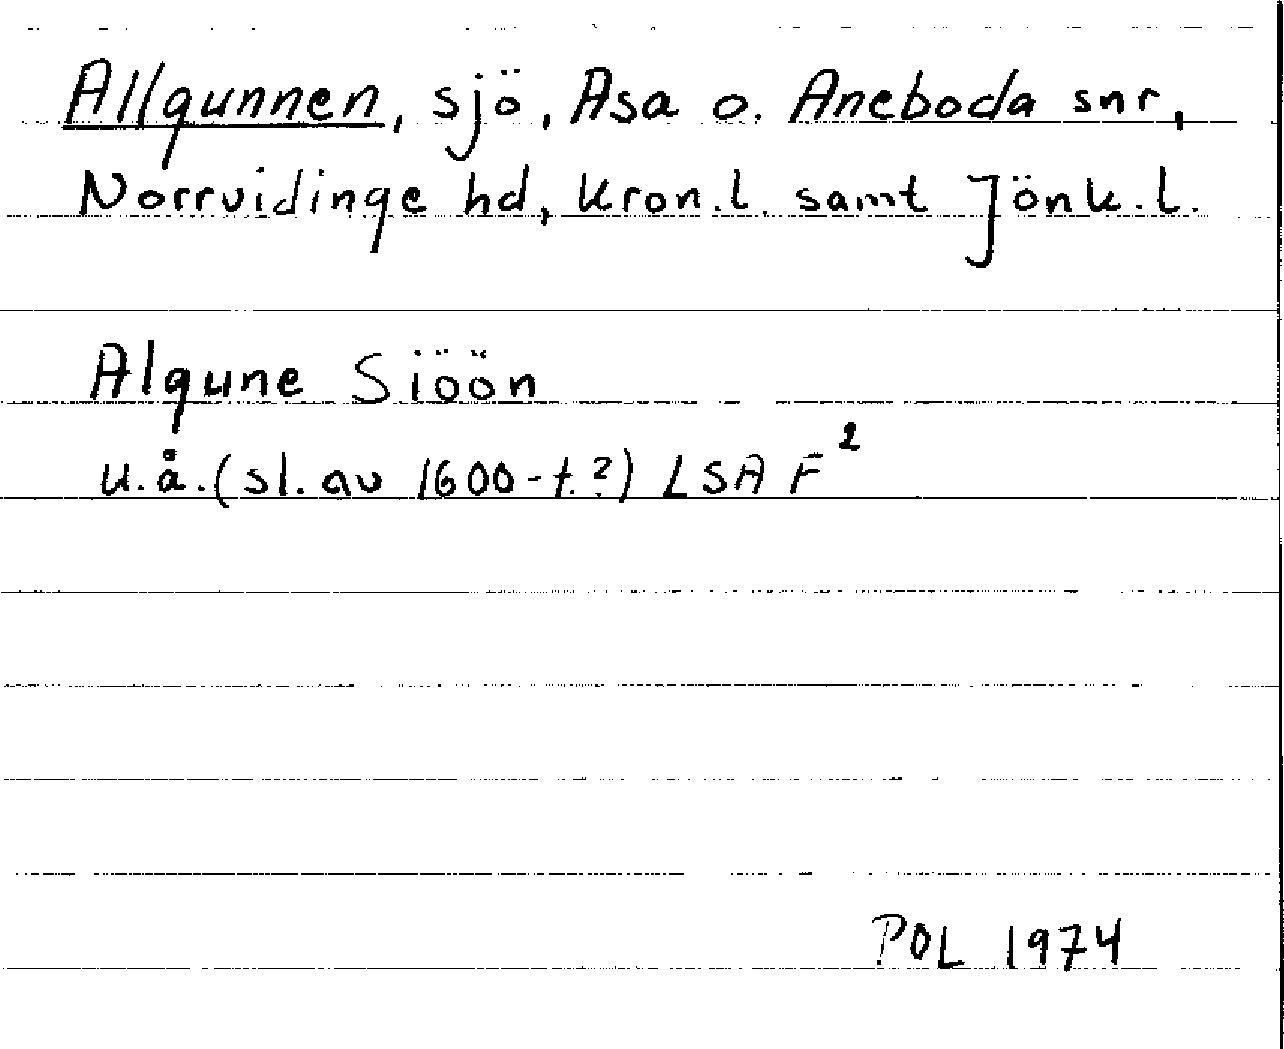 Allgunnen, sjö, Asa o. Aneboda snr,
Norrvidinge hd, Kron.l. samt Jönk.l.
Algune Siöön
u.å.(sl. av 1600-t.?) LSA F²
POL 1974